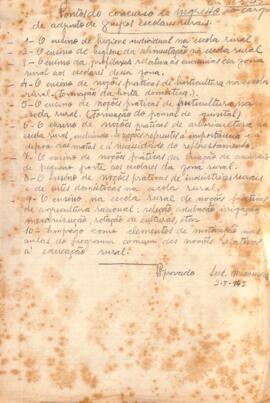 Pontos do concurso de ingresso ao cargo
de adjunto de grupos escolares rurais.
1- O ensino de higiene individual na escola rural
2- O ensino de higiene da alimentação na escola rural
3- O ensino da profilaxia relativa às endemias da zona
rural aos escolares dessa zona.
4- O ensino de noções práticas de horticultura na escola
rural (formação da horta doméstica).
5- O ensino de noções práticas de fruticultura na
escola rural. (formação do pomar de quintal)
6- O ensino de noções práticas de silvicultura na
escola rural, incluindo noções referentes à importancia e à
defesa das matas e à necessidade do reflorestamento
7- O ensino de noções práticas da criação de animais
de pequeno porte aos escolares da zona rural.
8- O ensino de noções práticas de industrias rurais
e de artes domésticas na escola rural.
9- O ensino na escola rural de noções práticas
de agricultura racional: seleção, adubação, irrigação
mecanização, rotação de culturas, etc.
10- Emprego como elementos de motivação nas
aulas do programa comum das noções relativas
à educação rural.
Aprovado